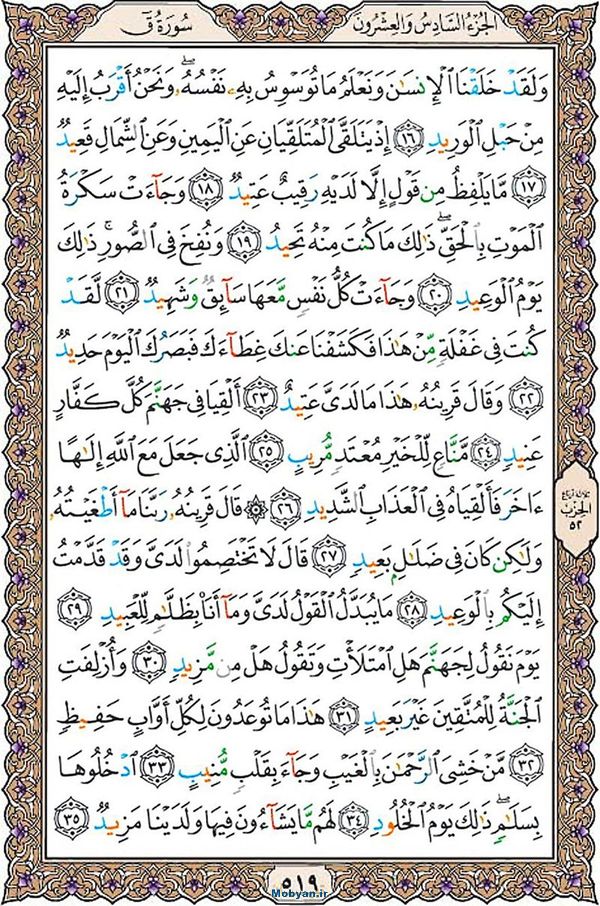 سُورَةُ قٓ
الجُزءُ السَّادِسُ وَالعِشْرُونَ
وَلَقَدْ خَلَقْنَا ٱلْإِنسَٰنَ وَنَعْلَمُ مَا تُوَسْوِسُ بِهِۦ نَفْسُهُۥۖ وَنَحْنُ أَقْرَبُ إِلَيْهِ
مِنْ حَبْلِ ٱلْوَرِيدِ ١٦ إِذْ يَتَلَقَّى ٱلْمُتَلَقِّيَانِ عَنِ ٱلْيَمِينِ وَعَنِ ٱلشِّمَالِ قَعِيدٌ
١٧ مَّا يَلْفِظُ مِن قَوْلٍ إِلَّا لَدَيْهِ رَقِيبٌ عَتِيدٌ ١٨ وَجَآءَتْ سَكْرَةُ
ٱلْمَوْتِ بِٱلْحَقِّۖ ذَٰلِكَ مَا كُنتَ مِنْهُ تَحِيدُ ١٩ وَنُفِخَ فِى ٱلصُّورِۚ ذَٰلِكَ
يَوْمُ ٱلْوَعِيدِ ٢٠ وَجَآءَتْ كُلُّ نَفْسٍ مَّعَهَا سَآئِقٌ وَشَهِيدٌ ٢١ لَّقَدْ
كُنتَ فِى غَفْلَةٍ مِّنْ هَٰذَا فَكَشَفْنَا عَنكَ غِطَآءَكَ فَبَصَرُكَ ٱلْيَوْمَ حَدِيدٌ
٢٢ وَقَالَ قَرِينُهُۥ هَٰذَا مَا لَدَىَّ عَتِيدٌ ٢٣ أَلْقِيَا فِى جَهَنَّمَ كُلَّ كَفَّارٍ
عَنِيدٍ ٢٤ مَّنَّاعٍ لِّلْخَيْرِ مُعْتَدٍ مُّرِيبٍ ٢٥ ٱلَّذِى جَعَلَ مَعَ ٱللَّهِ إِلَٰهًا
ءَاخَرَ فَأَلْقِيَاهُ فِى ٱلْعَذَابِ ٱلشَّدِيدِ ٢٦ ۞ قَالَ قَرِينُهُۥ رَبَّنَا مَآ أَطْغَيْتُهُۥ
وَلَٰكِن كَانَ فِى ضَلَٰلٍۭ بَعِيدٍ ٢٧ قَالَ لَا تَخْتَصِمُوا۟ لَدَىَّ وَقَدْ قَدَّمْتُ
إِلَيْكُم بِٱلْوَعِيدِ ٢٨ مَا يُبَدَّلُ ٱلْقَوْلُ لَدَىَّ وَمَآ أَنَا۠ بِظَلَّٰمٍ لِّلْعَبِيدِ ٢٩
يَوْمَ نَقُولُ لِجَهَنَّمَ هَلِ ٱمْتَلَأْتِ وَتَقُولُ هَلْ مِن مَّزِيدٍ ٣٠ وَأُزْلِفَتِ
ٱلْجَنَّةُ لِلْمُتَّقِينَ غَيْرَ بَعِيدٍ ٣١ هَٰذَا مَا تُوعَدُونَ لِكُلِّ أَوَّابٍ حَفِيظٍ
٣٢ مَّنْ خَشِىَ ٱلرَّحْمَٰنَ بِٱلْغَيْبِ وَجَآءَ بِقَلْبٍ مُّنِيبٍ ٣٣ ٱدْخُلُوهَا
بِسَلَٰمٍۖ ذَٰلِكَ يَوْمُ ٱلْخُلُودِ ٣٤ لَهُم مَّا يَشَآءُونَ فِيهَا وَلَدَيْنَا مَزِيدٌ ٣٥
ثلاثة أرباع
الحزب
٥٢
٥١٩
Mobyan.ir